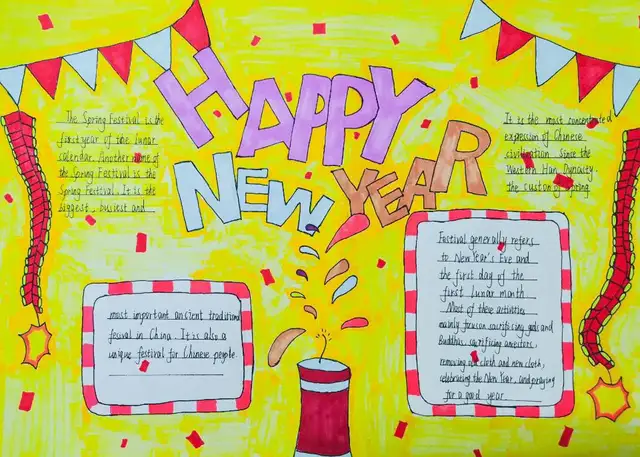 HAPPY
NEW YEAR
The Spring Festival is the
first year of the lunar
calendar. Another name of
the Spring Festival is the
Spring Festival. It is the
biggest, busiest and
most important ancient traditional
fesival in China. It is also a
unique festival for Chinese people.
It is the most concentrated
expression of Chinese
civilization. Since the
Western Han Dynasty.
the custom of Spring
Festival generally refers
to New Year's Eve and
the first day of the
first lunar month
Most of these activities
mainly on sacrificing gods and
Buddhas, sacrificing ancestors,
removing cloth and new cloth,
celebrating the New Year, and praying
for a good year.